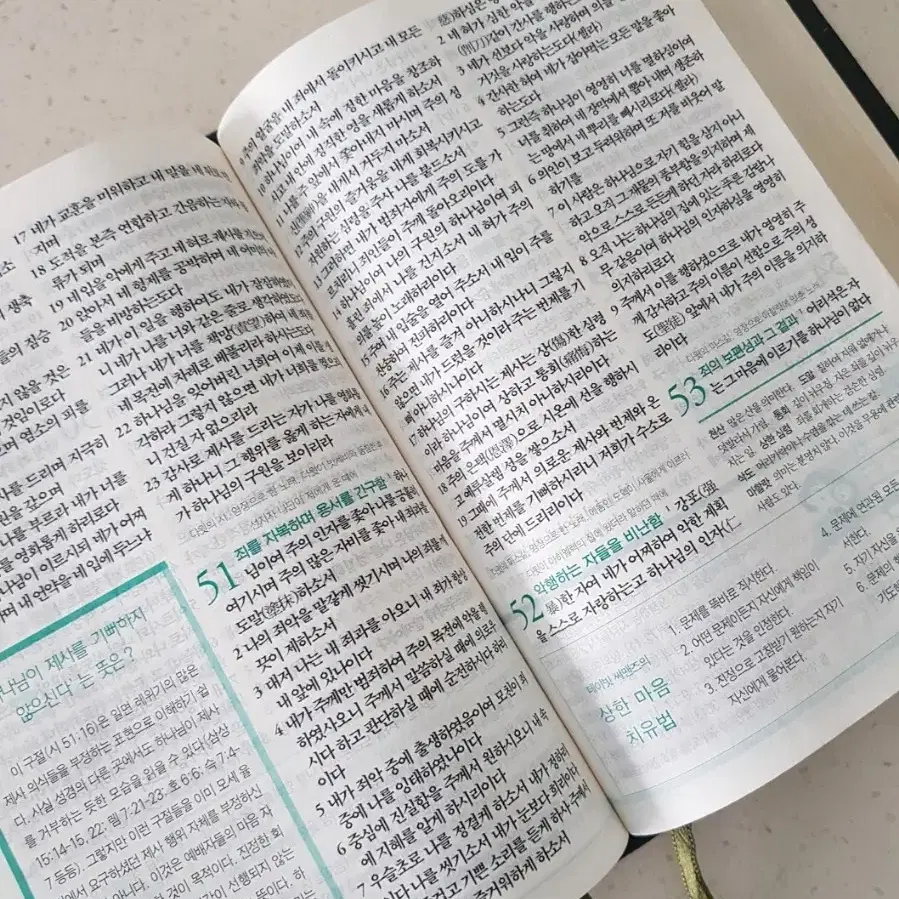 17 네가 교훈을 미워하고 내 말을 네 뒤로
지며
18 도적을 본즉 연합하고 간음하는
류가 되며
19 네 입을 악에게 주고 네 혀로 궤사를
20 앉아서 네 형제를 공박하며 네 어미의
들을 비방하는도다
21 네가 이 일을 행하여도 내가 잠잠하였더
니 네가 나를 너와 같은 줄로 생각하였도다
그러나 내가 너를 책망(責望)하여 네 죄를
네 목전에 차례로 베풀리라 하시는도다
22 하나님을 잊어버린 너희여 이제 이를 생
각하라 그렇지 않으면 내가 너희를 찢으리
니 건질 자 없으리라
23 감사로 제사를 드리는 자가 나를 영화롭
게 하나니 그 행위를 옳게 하는 자에게 내
가 하나님의 구원을 보이리라
51 죄를 자복하며 용서를 간구함
하나
님이여 주의 인자를 좇아 나를 긍휼히
여기시며 주의 많은 자비를 좇아 내 죄과를
도말(塗抹)하소서
2 나의 죄악을 말갛게 씻기시며 나의 죄를 깨
끗이 제하소서
3 대저 나는 내 죄과를 아오니 내 죄가 항상
내 앞에 있나이다
4 내가 주께만 범죄하여 주의 목전에 악을 행
하였사오니 주께서 말씀하실 때에 의로우
시다 하고 판단하실 때에 순전하시다 하리
이다
5 내가 죄악 중에 출생하였음이여 모친이 죄
중에 나를 잉태하였나이다
6 중심에 진실함을 주께서 원하시오니 내 속
에 지혜를 알게 하시리이다
7 우슬초로 나를 정결케 하소서 내가 정하리
이다 나를 씻기소서 내가 눈보다 희리이다
즐겁고 기쁜 소리를 듣게 하사 주께서
즐거워하게 하소서
않을 것은
것임이로다
며 염소의 피를
사를 드리며 지극히
원을 갚으며
나를 부르라 내가 너를
를 영화롭게 하리로다
님이 이르시되 네가 어찌
며 내 언약을 네 입에 두느냐
하나님이 제사를 기뻐하지
않으신다'는 뜻은?
이 구절(시 51:16)은 일면 레위기의 많은
제사 의식들을 부정하는 표현으로 이해하기 쉽
다. 사실 성경의 다른 곳에서도 하나님이 제사
를 거부하는 듯한 모습을 읽을 수 있다(삼상
15:14-15, 22; 렘 7:21-23; 호 6:6; 슥 7:4-
7 등등). 그렇지만 이런 구절들을 이미 모세 율
법에서 요구하셨던 제사 행위 자체를 부정하신
아니다. 이것은 예배자들의 마음 자
할 것이 목적이다. 진정한 회
감이 선행되지 않는
뜻이다. 하
9 주의 얼굴을 내 죄에서 돌이키시고 내 모든
죄악을 도말하소서
10 하나님이여 내 속에 정한 마음을 창조하
시고 내 안에 정직한 영을 새롭게 하소서
11 나를 주 앞에서 쫓아내지 마시며 주의 성
신을 내게서 거두지 마소서
12 주의 구원의 즐거움을 내게 회복시키시고
자원하는 심령을 주사 나를 붙드소서
13 그러하면 내가 범죄자에게 주의 도를 가
르치리니 죄인들이 주께 돌아오리이다
14 하나님이여 나의 구원의 하나님이여 피
흘린 죄에서 나를 건지소서 내 혀가 주의
의를 높이 노래하리이다
15 주여 내 입술을 열어 주소서 내 입이 주를
찬송하여 전파하리이다
16 주는 제사를 즐겨 아니하시나니 그렇지
않으면 내가 드렸을 것이라 주는 번제를 기
뻐 아니하시나이다
17 하나님의 구하시는 제사는 상(傷)한 심령
이라 하나님이여 상하고 통회(痛悔)하는
마음을 주께서 멸시치 아니하시리이다
18 주의 은택(恩澤)으로 시온에 선을 행하시
고 예루살렘 성을 쌓으소서
19 그때에 주께서 의로운 제사와 번제와 온
전한 번제를 기뻐하시리니 저희가 수소로
주의 단에 드리리이다
52 악행하는 자들을 비난함
강포(强
暴)한 자여 네가 어찌하여 악한 계획
을 스스로 자랑하는고 하나님의 인자
2 네 혀가 심한 악을 꾀하여
(削刀)같이 간사를 행하는도다
3 네가 선보다 악을 사랑하며 의를 말함보다
거짓을 사랑하는도다(셀라)
4 간사한 혀여 네가 잡아먹는 모든 말을 좋아
하는도다
5 그런즉 하나님이 영영히 너를 멸하심이여
너를 취하여 네 장막에서 뽑아내며 생존하
는 땅에서 네 뿌리를 빼시리로다(셀라)
6 의인이 보고 두려워하며 또 저를 비웃어 말
하기를
7 이 사람은 하나님으로 자기 힘을 삼지 아니
하고 오직 그 재물의 풍부함을 의지하며 제
악으로 스스로 든든케 하던 자라 하리로다
8 오직 나는 하나님의 집에 있는 푸른 감람나
무 같음이여 하나님의 인자하심을 영영히
의지하리로다
9 주께서 이를 행하셨으므로 내가 영영히 주
께 감사하고 주의 이름이 선함으로 주의 성
도(聖徒) 앞에서 내가 주의 이름을 의지하
리이다
53 죄의 보편성과 그 결과
어리석은 자
는 그 마음에 이르기를 하나님이 없다
데이빗 씨맨즈의
상한 마음
치유법
1. 문제를 똑바로 직시한다.
2. 어떤 문제이든지 자신에게 책임이
있다는 것을 인정한다.
3. 진정으로 고침받기 원하는지 자기
자신에게 물어본다.
4. 문제에 연관된 모든
서한다.
5. 자기 자신을
6. 문제의 핵
기도